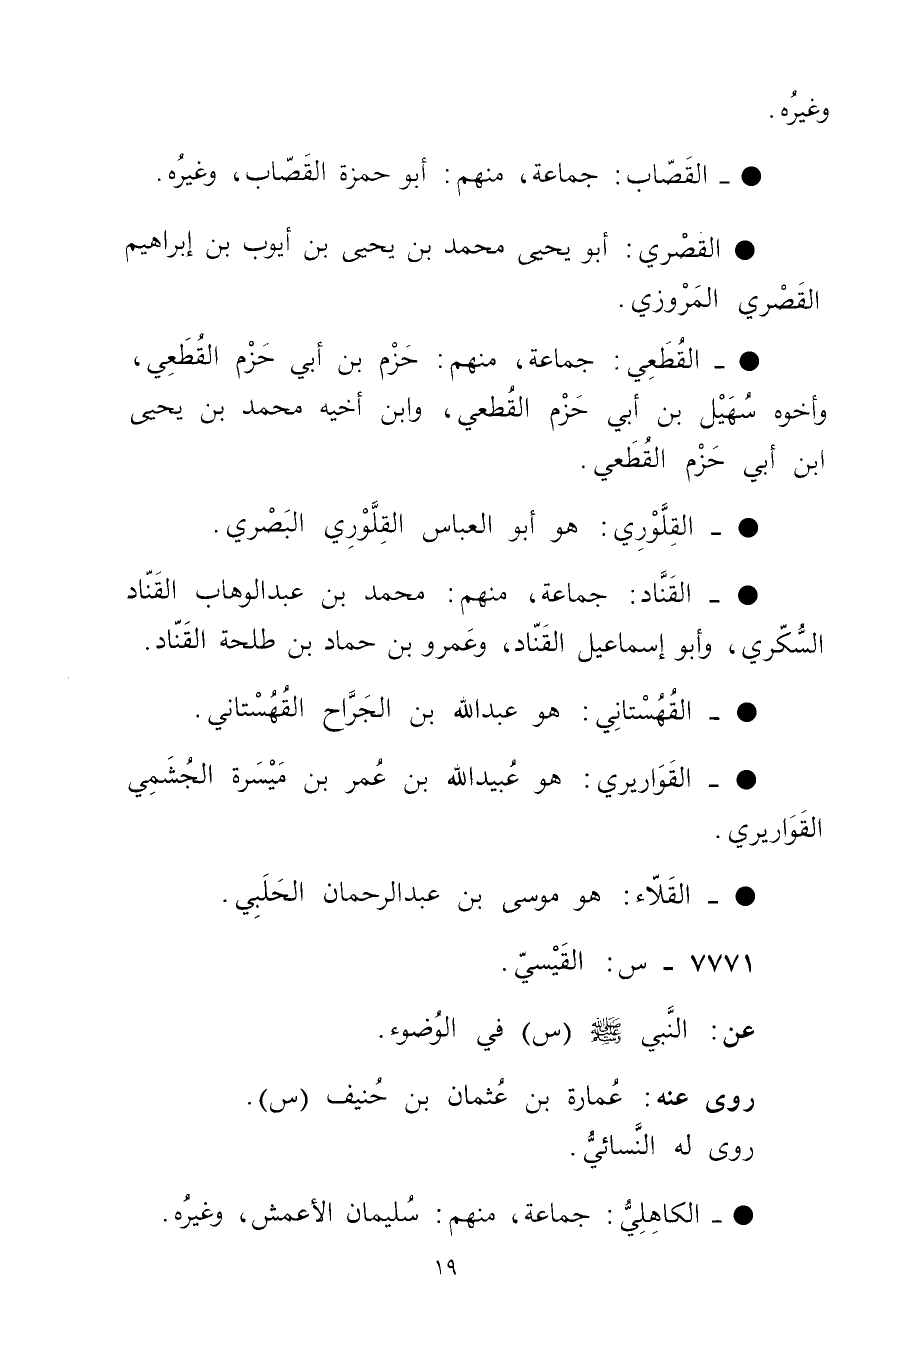 وغيرُه .
● ـ القَصّاب: جماعة، منهم: أبو حمزة القَصّاب، وغيرُه.
● القصْري: أبو يحيى محمد بن يحيى بن أيوب بن إبراهيم
القَصْري المَرْوزي.
● ـ القُطَعِي: جماعة، منهم: حَزْم بن أبي حَزْم القُطَعِي،
وأخوه سُهَيْل بن أبي حَزْم القُطعي، وابن أخيه محمد بن يحيى
ابن أبي حَزْم القُطَعي.
● ـ القِلَّوْرِي: هو أبو العباس القِلَّوْرِي البَصْري.
● ـ القَنَّاد: جماعة، منهم: محمد بن عبدالوهاب القَنّاد
السُّكّري، وأبو إسماعيل القَنّاد، وعَمرو بن حماد بن طلحة القَنّاد.
● ـ القُهُسْتانِي: هو عبدالله بن الجَرَّاح القُهُسْتاني.
● ـ القَوَاريري: هو عُبيدالله بن عُمر بن مَيْسَرة الجُشَمِي
القَوَاريري.
● ـ القَلّاء: هو موسى بن عبدالرحمان الحَلَبِي.
٧٧٧١ ـ س: القَيْسيّ.
عن: النَّبي ﷺ (س) في الوُضوء.
روى عنه: عُمارة بن عُثمان بن حُنيف (س).
روى له النَّسائيُّ.
● ـ الكاهِلِيُّ: جماعة، منهم: سُليمان الأعمش، وغيرُه.
١٩